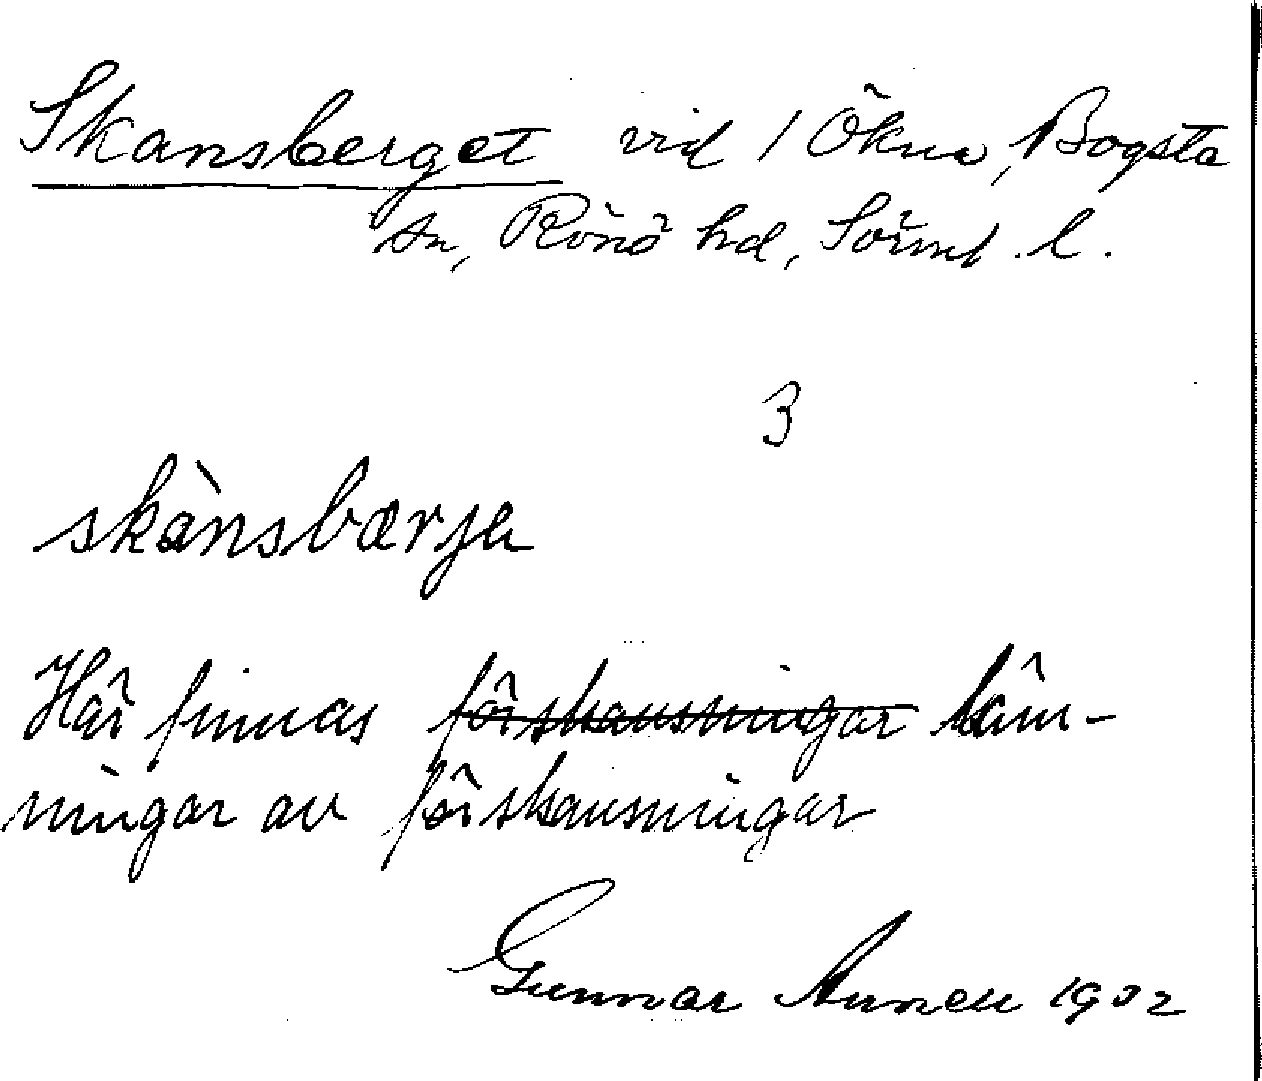 Skansberget vid 1 Ökna, Bogsta
sn, Rönö hd, Sörml. l.
3
skànsbærjə
Här finnas förskansningar läm-
ningar av förskansningar
Gunnar 1932